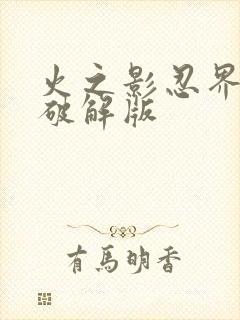 火之影忍界
破解版
有馬明香